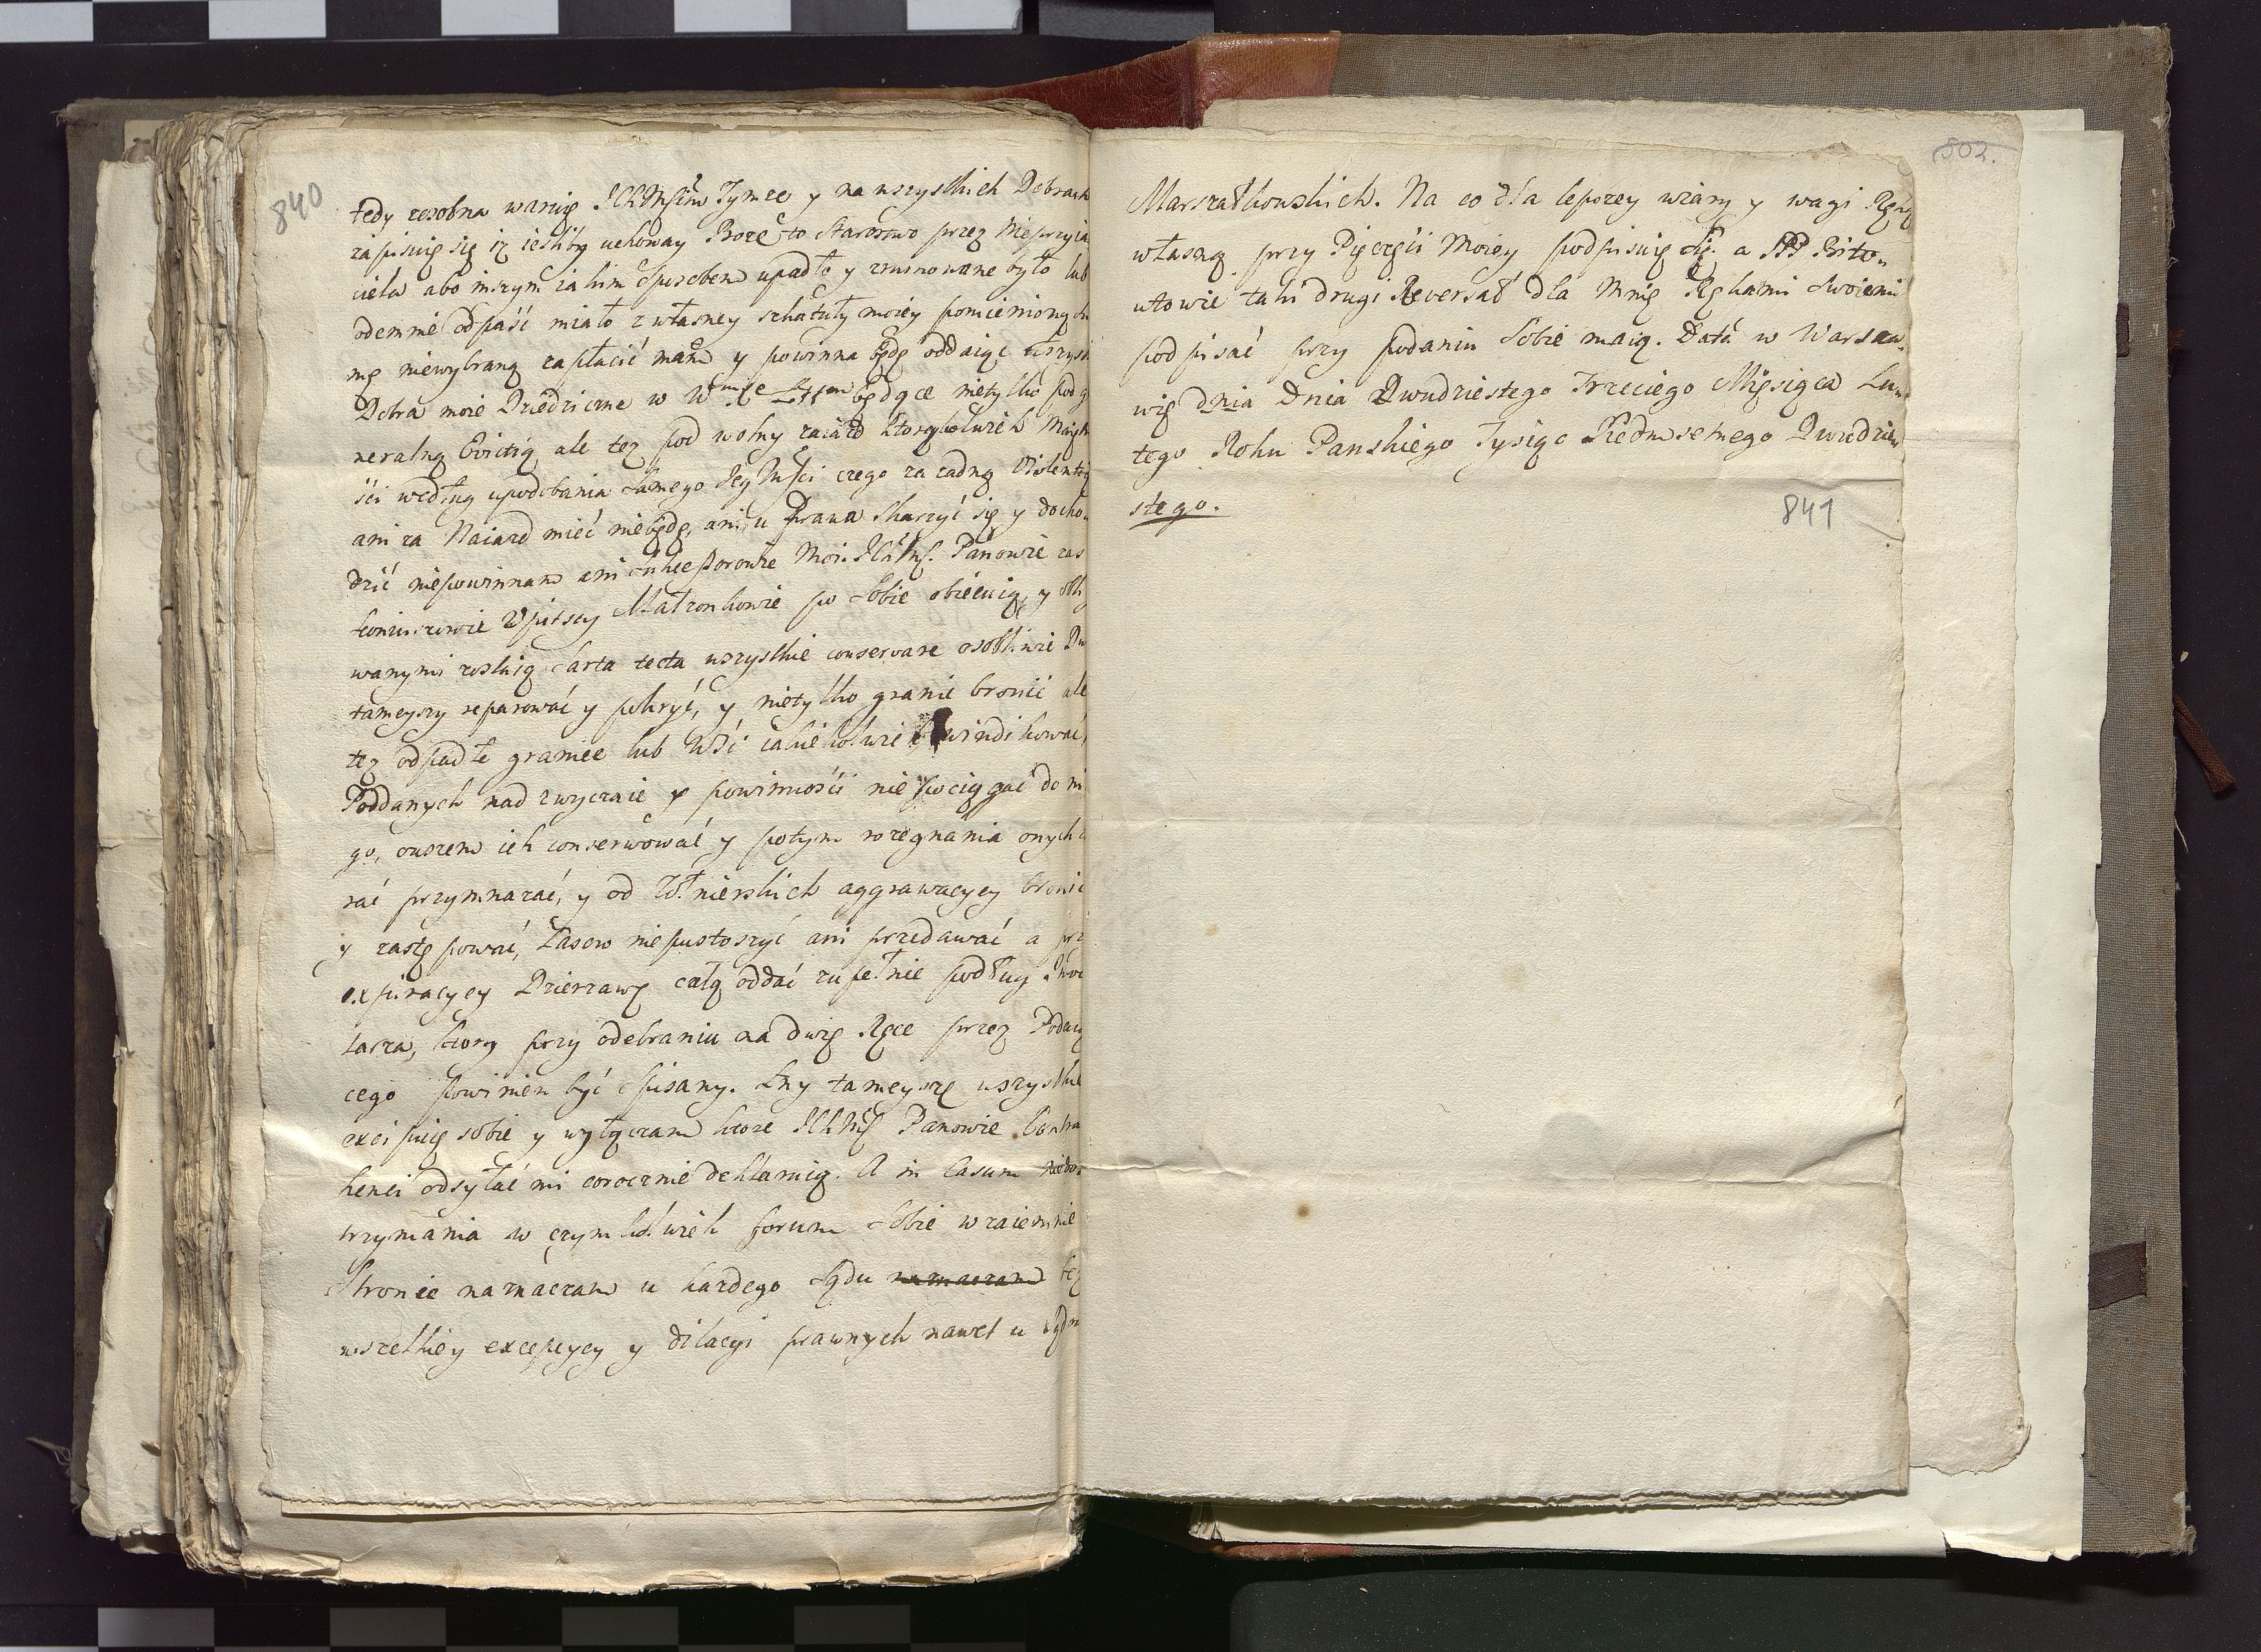 840
tedy zesobna waruię IchMściom Tymze y na wszystkich Dobrach
zapisuię się iz iesliby uchoway Boze to Starostwo przez Nieprzyia
ciela abo inszym iakim sposobem upadłe y zruinowane było lub
odemnie odpaść miało z własney szkatuły moiey pomienioną su
mę niewybraną zapłacić mam y powinna będę oddaiąc wszyst
Dobra moie Dziedziczne w będące nietylko pod g
neralną Evictią ale tez pod wolny zaiazd ktorychkolwiek Maiętn
ści według upodobania samego Jeg Mści czego za zadną Violentią
ani za Naiazd mieć niebędę, ani u Prawa skarzyć się y docho„
dzić niepowinnam ani Sukcessorowie Moi. IchMś. Panowie zas
Koniuszowie Małzonkowie po sobie obiecuią, y obli
wanymi zostaią Sarta tecta wszystkie conservare osobliwie Dw
tameyszy reparować y pokryć, y nietylko granic bronić ale
tez odpadłe granice lub Wsi iakiekolwiek windikować,
Poddanych nad zwyczaie y powinności nie pociągać do ni
go, owszem ich conserwować y potym rozegnania onych
rać przymnazać, y od Zołnierskich aggrawacyey bronić
y zastępować, Lasow niepustoszyć ani przedawać a prz
expiracyey Dzierzawę całą oddać zupełnie podług Inwe
tarza, ktory przy odebraniu na dwie Ręce przez Podaią
cego powinien być spisany. Lny tameysze wszystkie
excipuię sobie y wyłączam ktore IchMś Panowie Contra
henci odsyłać mi corocznie deklaruią. A in Casum niedo„
trzymania w czymkolwiek forum sobie wzaiemnie
Stronie naznaczam u kazdego Sądu naznaczam bez
wszelkiey excepcyey y dilacyi prawnych nawet u Sądow
802.
Marszałkowskich. Na co dla lepszey wiary y wagi Ręką
własną przy Pięczęci Moiey podpisuię się. a PP Bito„
wtowie taki drugi Rewersał dla Mnie Rękami swoiemi
podpisać przy podaniu sobie maią. Data w Warsza„
wie dnia Dnia Dwudziestego Trzeciego Miesiąca Lu„
tego Roku Panskiego Tysiąc Siedmsetnego Dwudzie„
stego.
841